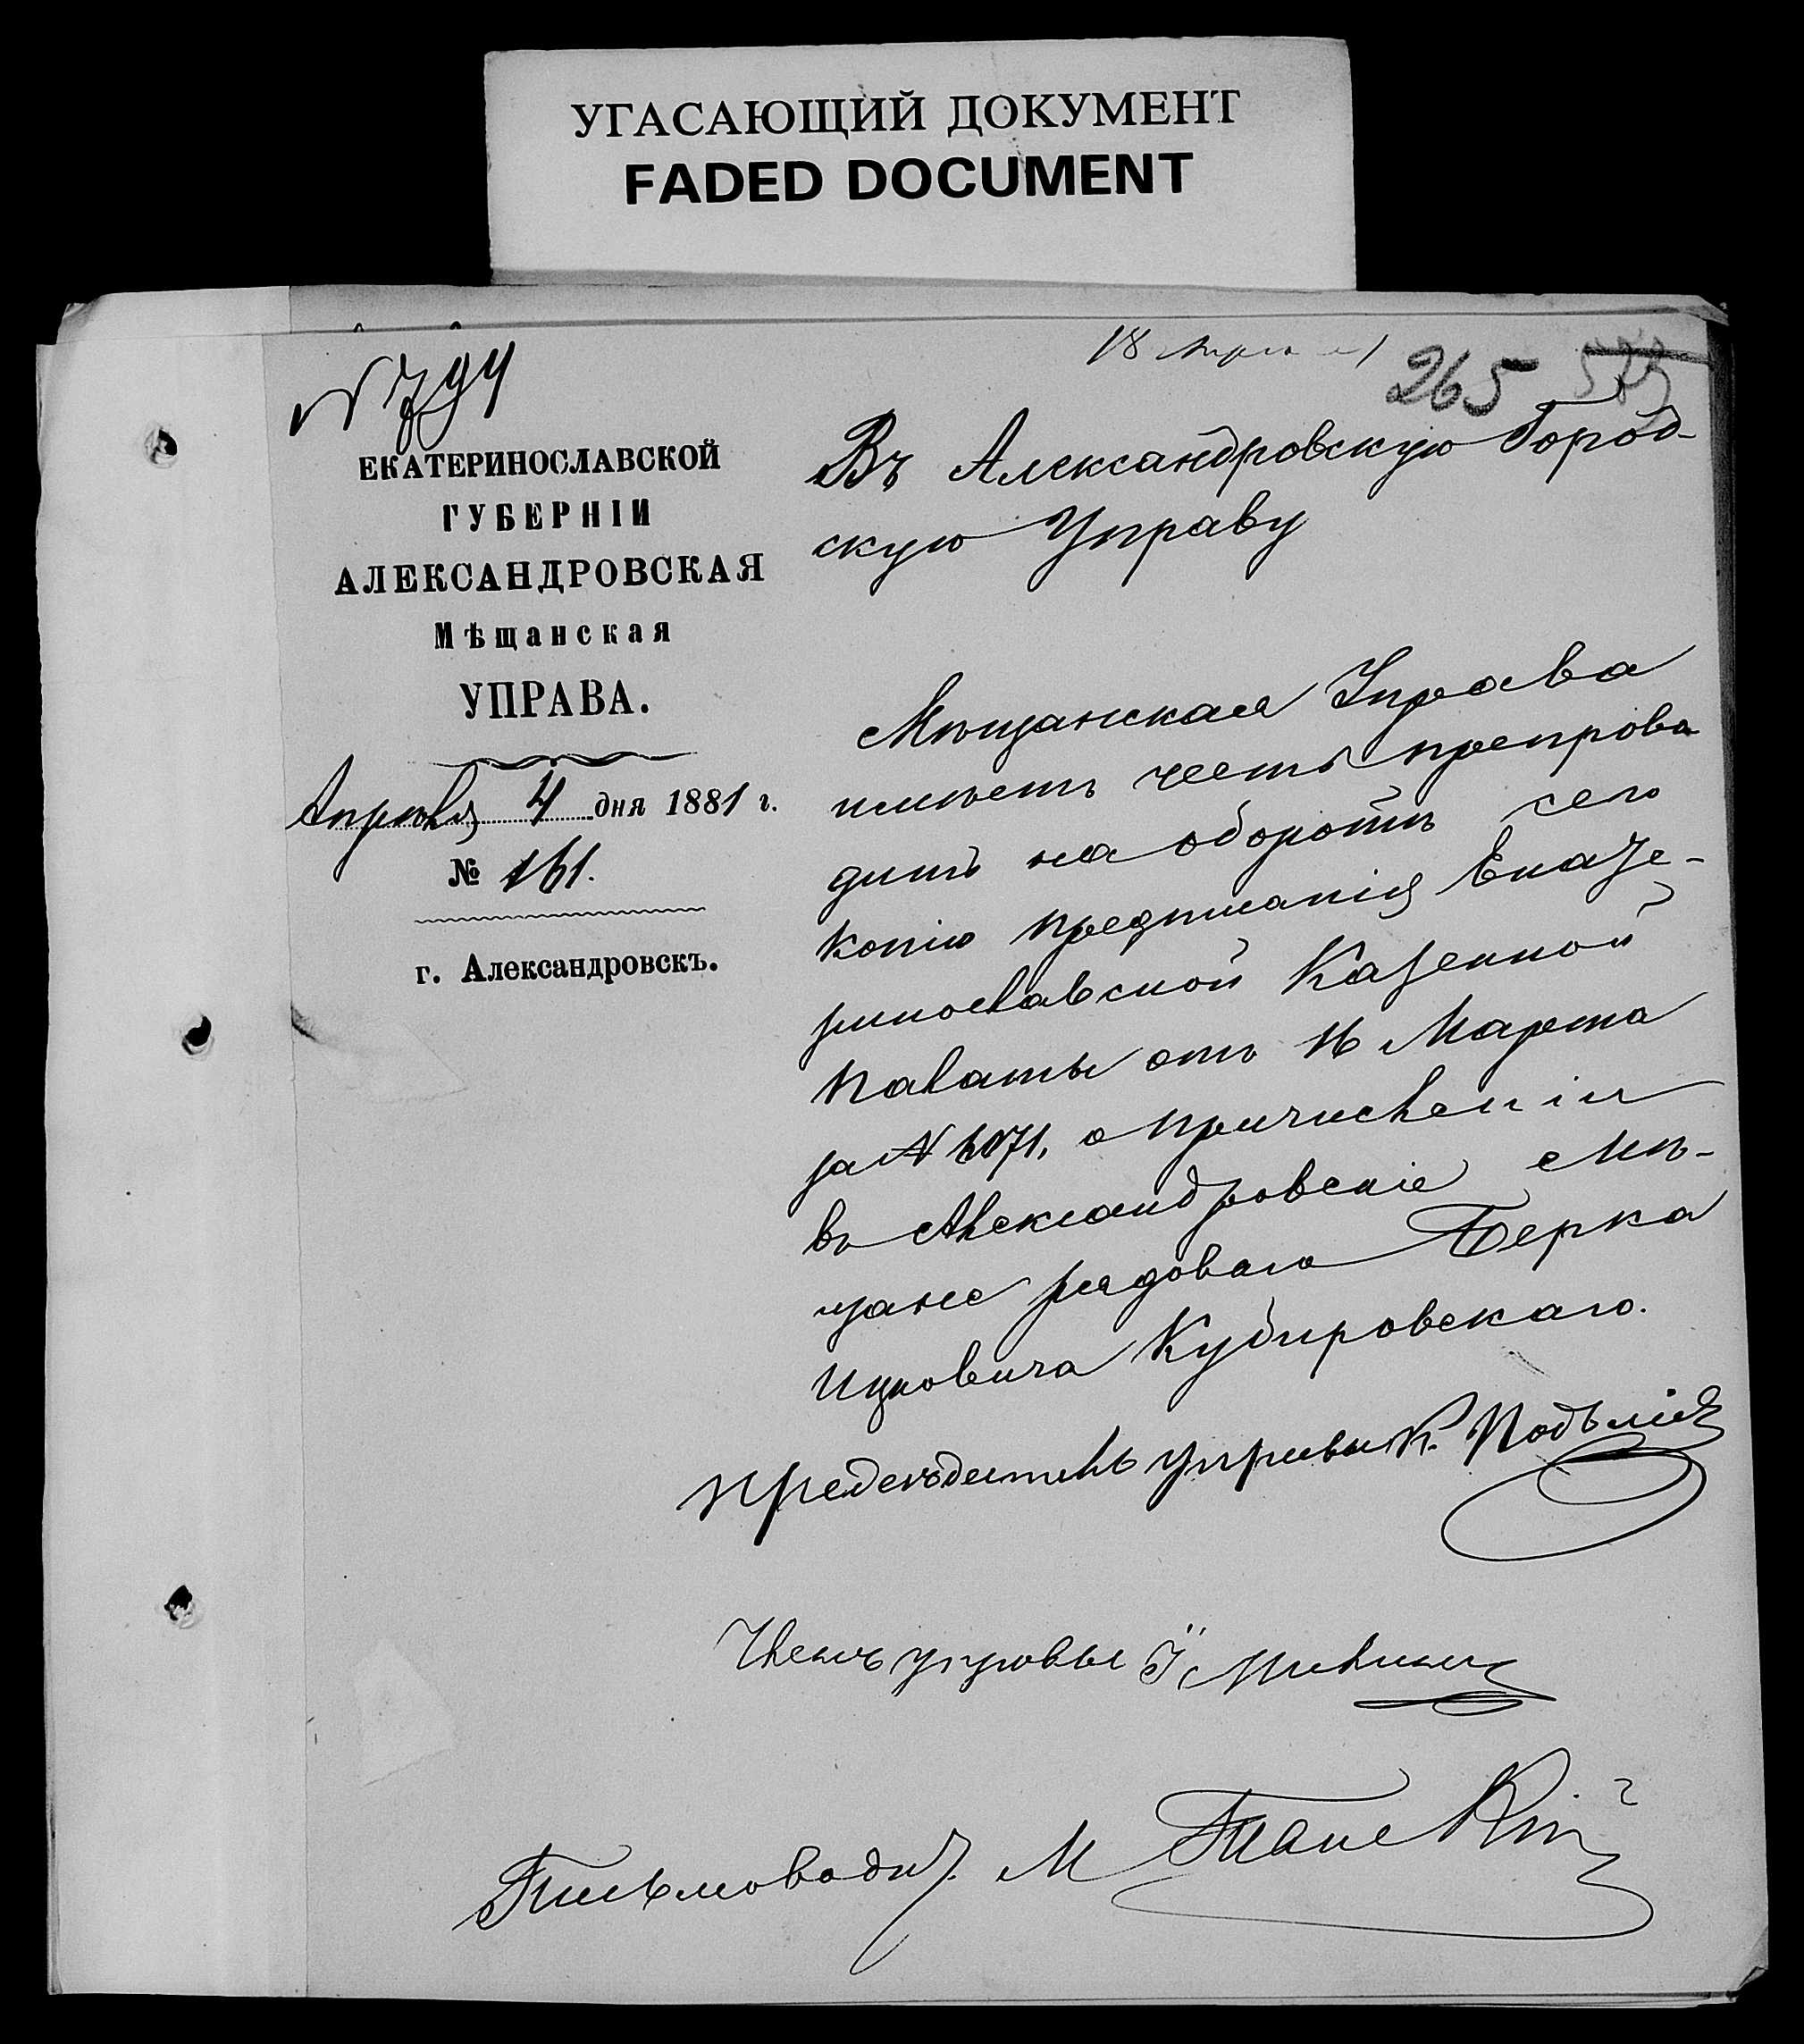 УГАСАЮЩИЙ ДОКУМЕНТ
FADED DOCUMENT
18
265
N 794
ЕКАТЕРИНОСЛАВСКОЙ
ГУБЕРНІИ
АЛЕКСАНДРОВСКАЯ
Мѣщанская
УПРАВА.
Апрѣля 4 дня 1881 г.
№ 161.
г. Александровскъ.
Въ Александровскую Город-
скую Управу
Мѣщанская Управа
имѣетъ честь препрово
дить на оборотѣ сего
копію предписанія Екате-
ринославской Казенной
Палаты отъ 16 Марта
за N о причисленіи
въ Александровскіе Мѣ-
щане рядоваго Берка
Ицковича Кубировскаго.
Предсѣдатель управы К.
Членъ управы І
Письмовод. М